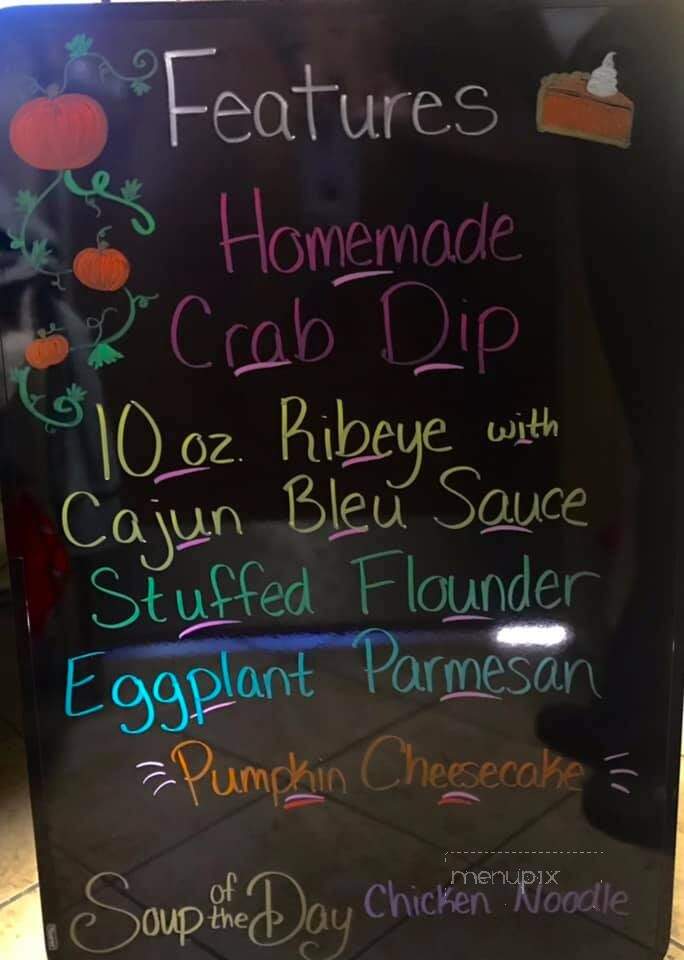 Features
Homemade
Crab Dip
10 oz. Ribeye with
Cajun Bleu Sauce
Stuffed Flounder
Eggplant Parmesan
Pumpkin Cheesecake
Soup of the Day Chicken Noodle
menupix